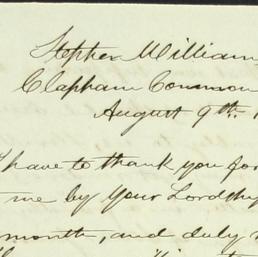 Stephen William
Clapham Common
August 9th
have to thank you for
me by Your Lordship
month, and duly